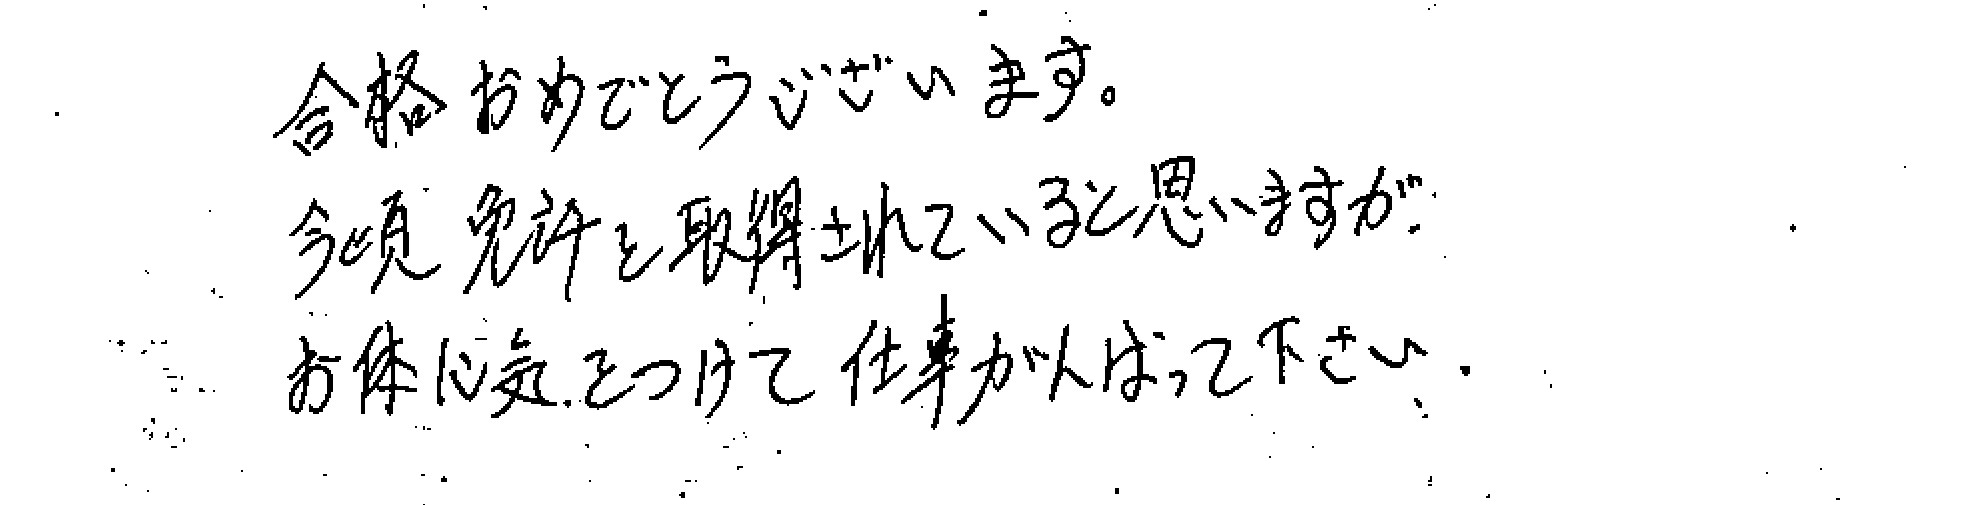 合格おめでとうございます。
今頃免許を取得されていると思いますが
お体に気をつけて仕事がんばって下さい.